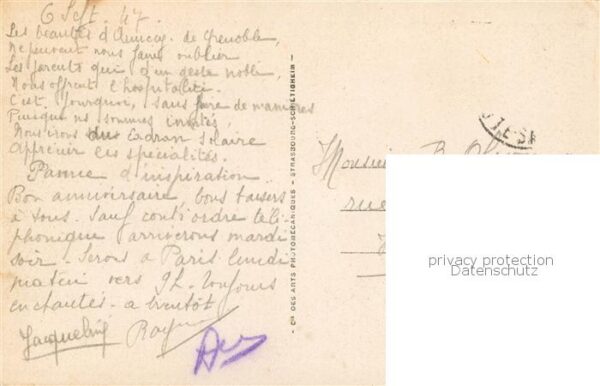 6 Sept. 47.
Les beautés d'Annecy, de Grenoble,
ne peuvent nous faire oublier
Les parents qui d'un geste noble,
Nous offrent l'hospitalité.
C'est pourquoi, sans faire de manières
Puisque ns sommes invités,
Nous irons au Cadran Solaire
Apprécier les spécialités.
Panne d'inspiration
Bon anniversaire bons baisers
à tous. Sauf contr'ordre télé-
phonique arriverons mardi
soir. Serons à Paris lundi
matin vers 9h. Toujours
enchantés - a bientôt
Jacqueline Roger
Cie DES ARTS PHOTOMÉCANIQUES - STRASBOURG-SCHILTIGHEIM
Monsieur R.
rue
privacy protection
Datenschutz